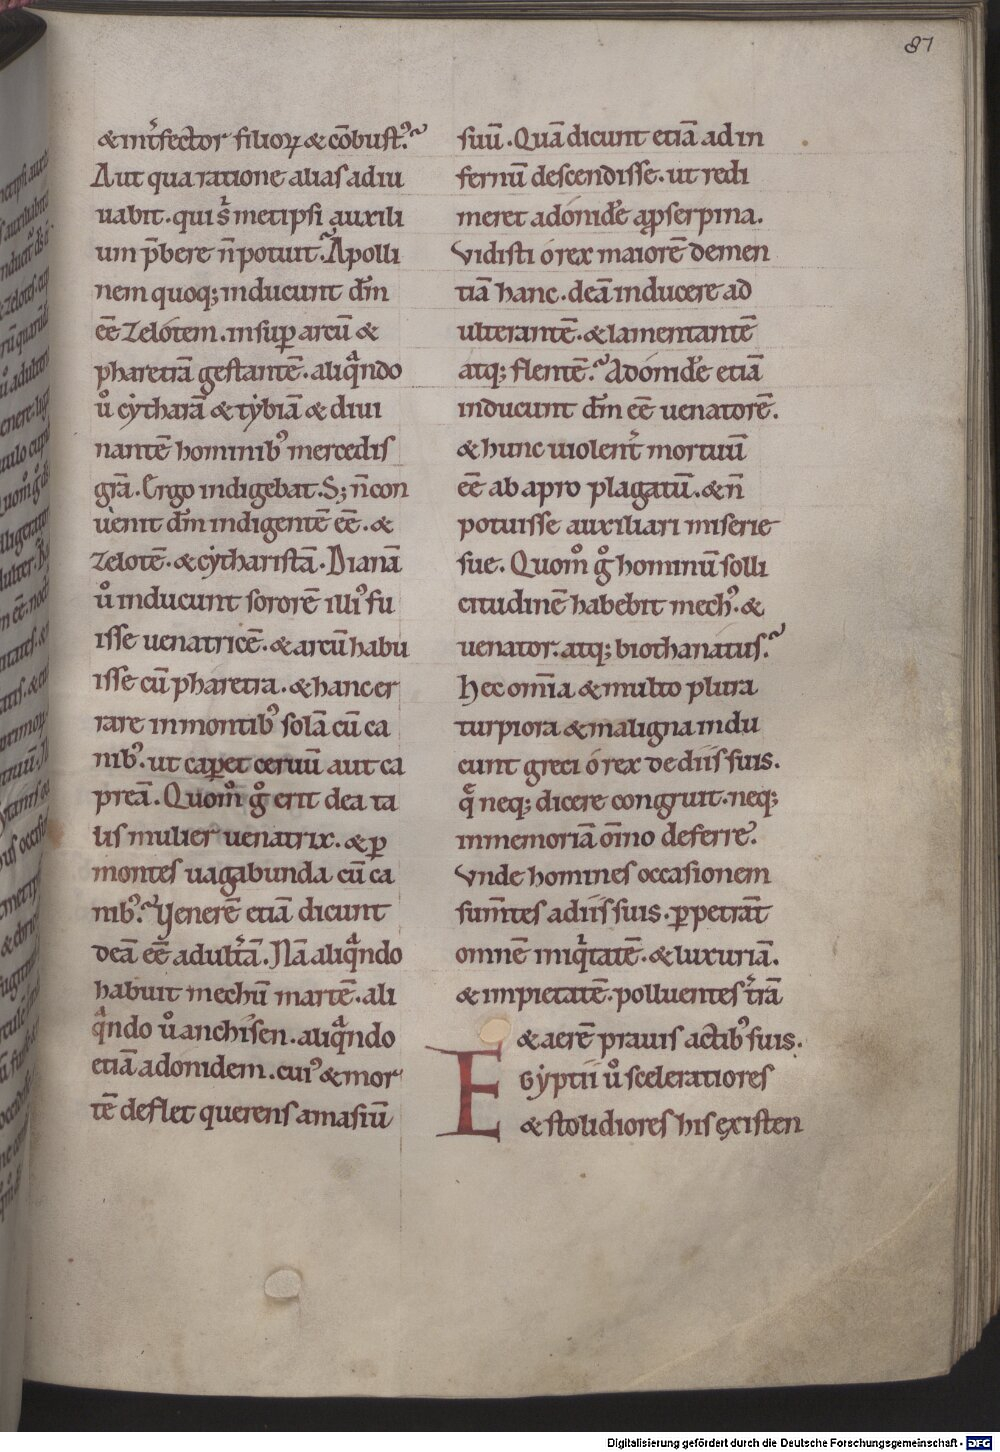 87
&int̄fector filioꝝ & cōbust᾿?
Aut qua ratione alias adiu
uabit. qui s̄metipsi auxili
um p̄bere n̄ potuit? Apolli
nem quoq; inducunt dm̄
eē zelótem. insuꝑ arcū &
pharetrā gestantē. aliqͣndo
ů cẏtharā & tẏbiā & diui
nantē hominib᾿ mercedis
grā. Ergo indigebat. S; n̄ con
uenit dm̄ indigentē eē. &
zelotē. & cẏtharistā. Dianā
ů inducunt sororē illi᾿ fu
isse uenatricē. & arcū habu
isse cū pharetra. & hanc er
rare in montib᾿ solā cū ca
nib᾿. ut caperet ceruū aut ca
preā. Quom̊ g̊ erit dea ta
lis mulier uenatrix. & ꝑ
montes uagabunda cū ca
nib᾿? Venerē etiā dicunt
deā eē adultā. Nā aliqͣndo
habuit mechū martē. ali
qͣndo ů anchisen. aliqͣndo
etiā adonidem. cui᾿ & mor
tē deflet querens amasiū
suū. Quā dicunt etiā ad in
fernū descendisse. ut redi
meret adónidē a ꝓserpina.
Vidisti ó rex maiorē demen
tiā hanc. deā inducere ad
ulterantē. & lamentantē
atq; flentē? Adónidē etiā
inducunt dm̄ eē uenatorē.
& hunc uiolent̄ mortuū
eē ab apro plagatū. & n̄
potuisse auxiliari miserie
sue. Quom̊ g̊ hominū solli
citudinē habebit mech᾿. &
uenator. atq; biothanatus?
Hec om̄ia & multo plura
turpiora & maligna indu
cunt greci ó rex de diis suis.
q̄ neq; dicere congruit. neq;
in memoriā om̄no deferre᾿.
Vnde homines occasionem
sum̄tes a diis suis. ꝑpetrāt
omnē iniqͥtatē. & luxuriā.
& impietatē. polluentes t̄rā
& aerē prauis actib᾿ suis.
Egẏptii ů sceleratiores
& stolidiores his existen
Digitalisierung gefördert durch die Deutsche Forschungsgemeinschaft - DFG